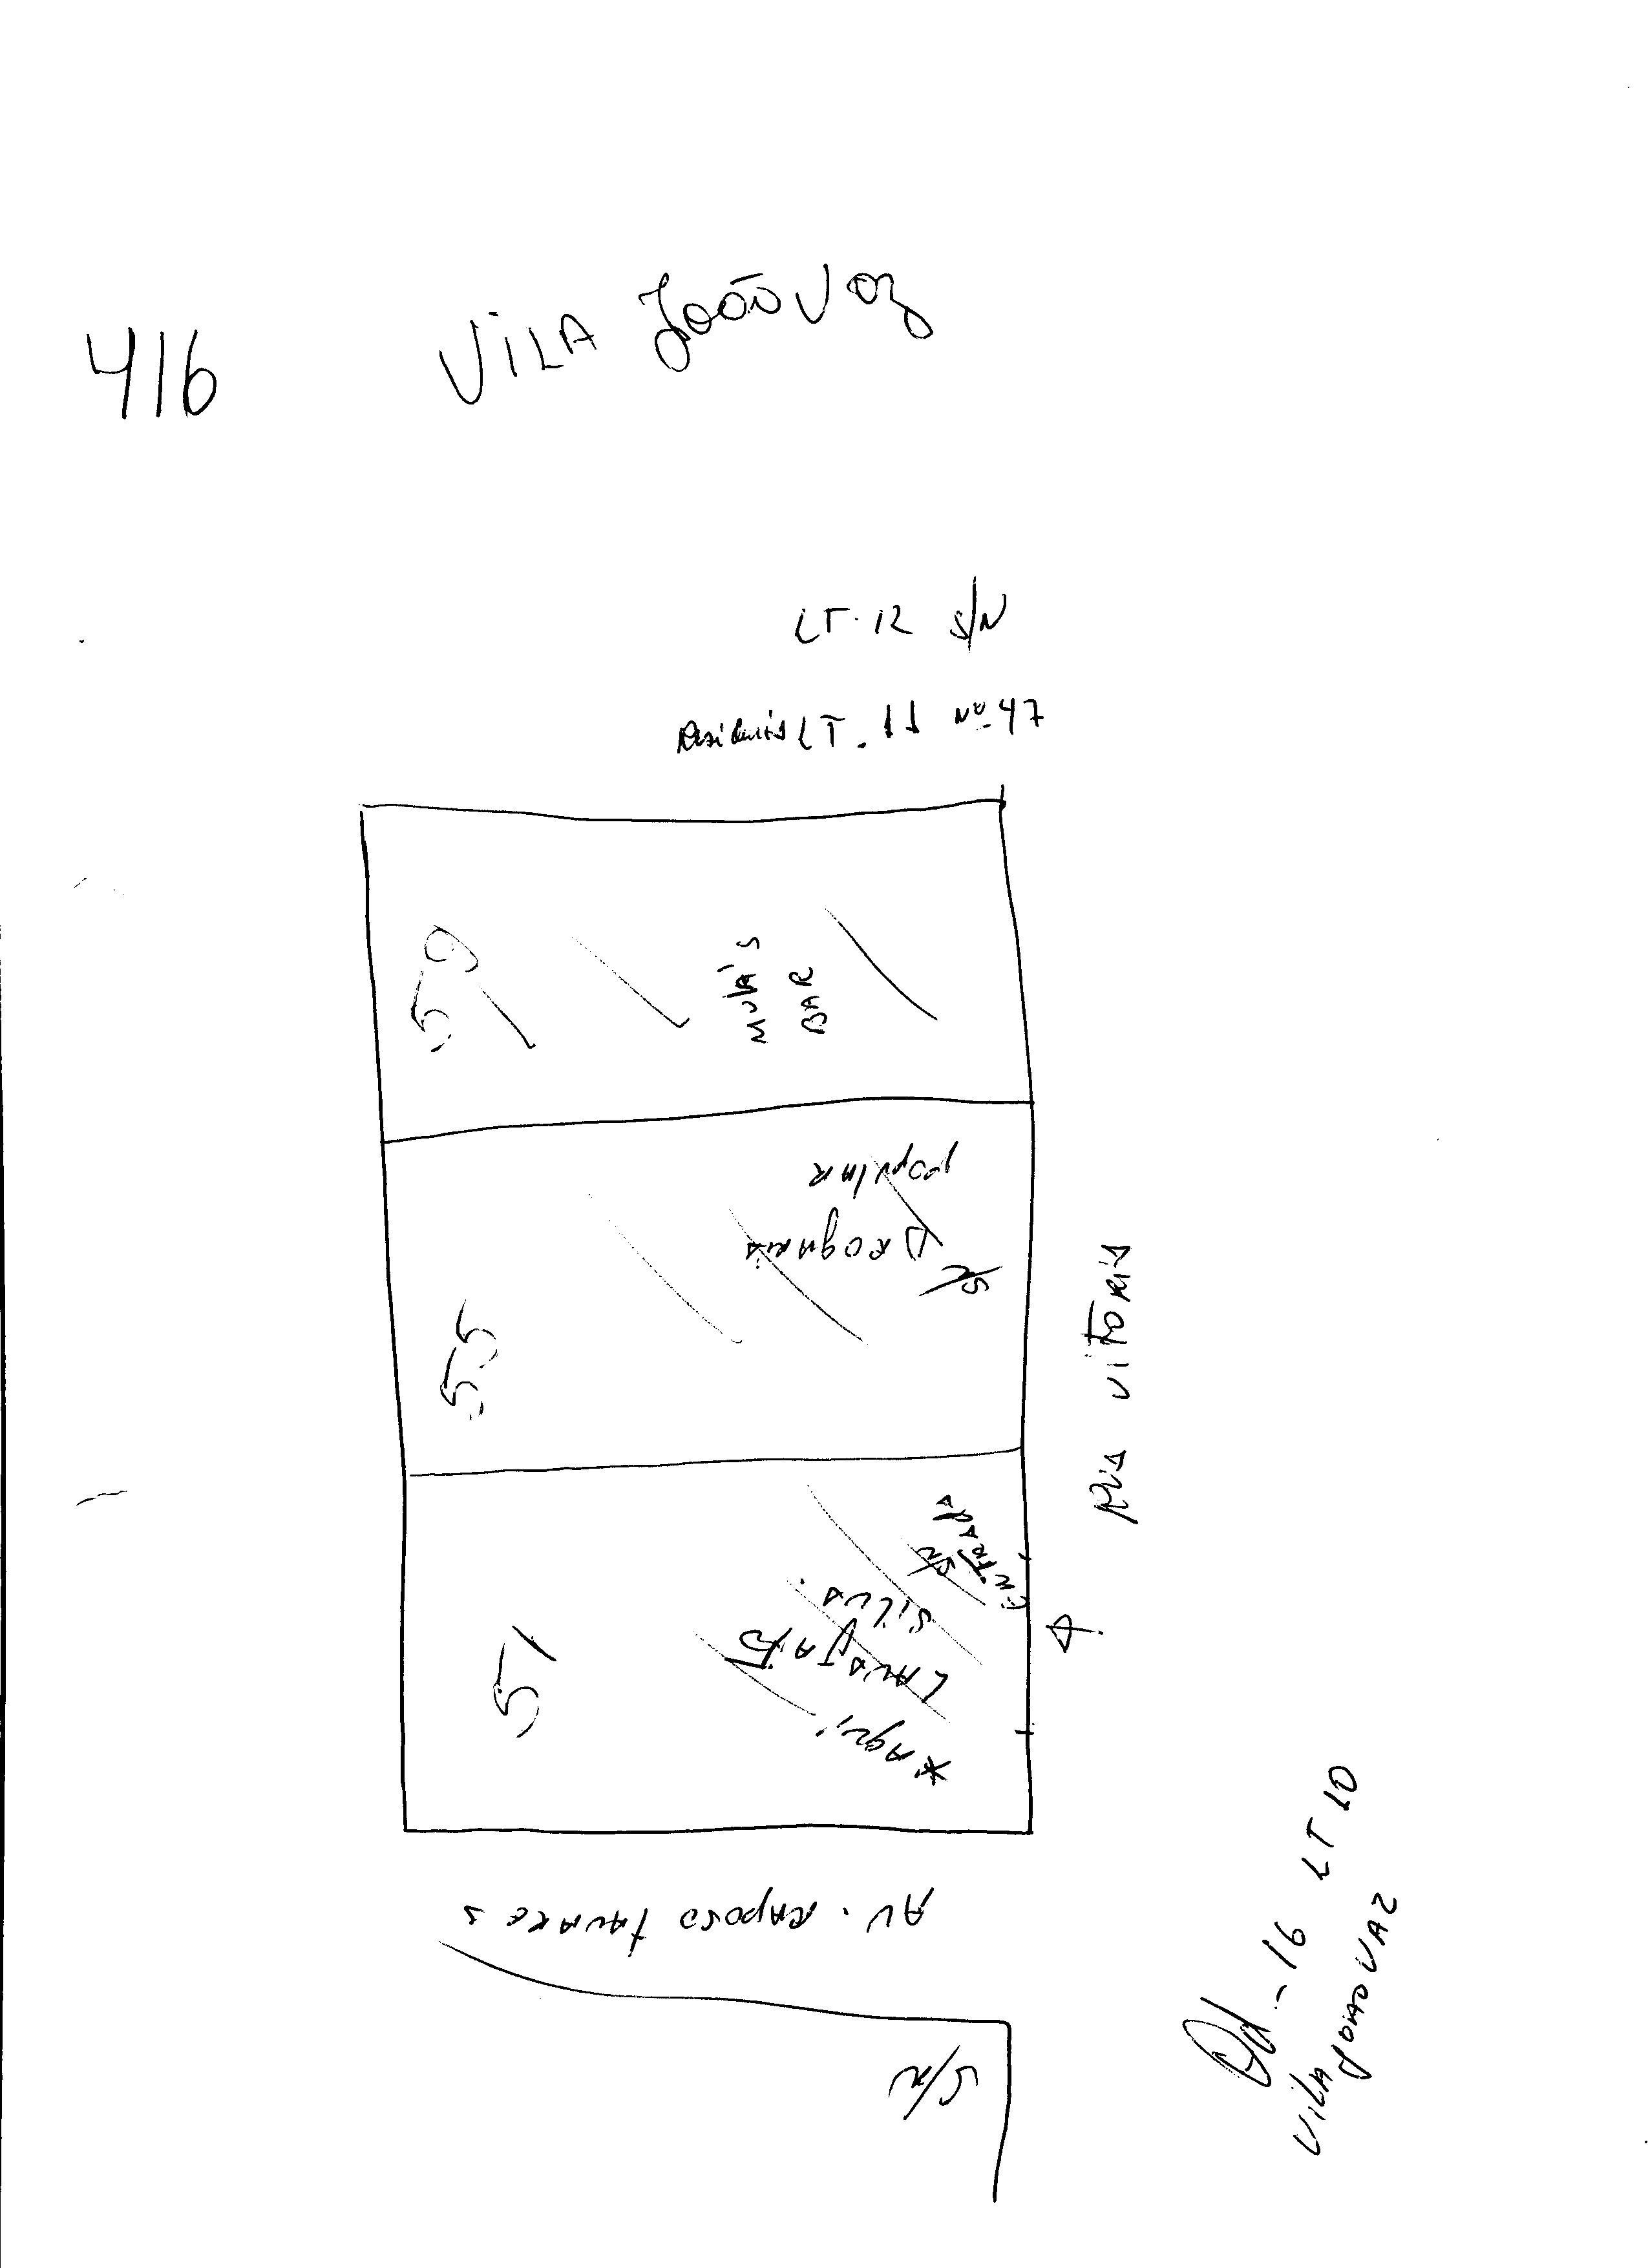 416
VILA João Vaz
LT. 12 S/N
LT. 11 Nº 47
59
MULA'S
BAR
popular
Drogaria
S/N
55
Rua Vitoria
Entrada
S/N
51
* Aqui
LAVAJATO
Silva.
AV. RAPOSO TAVARES
S/N
Qd - 16 LT 10
Vila JOÃO VAZ